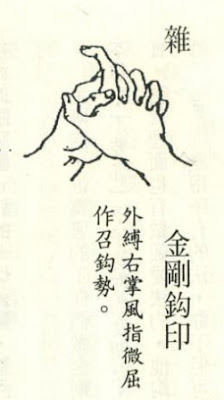 雜
金剛鈎印
外縛右掌風指微屈
作召鈎勢。